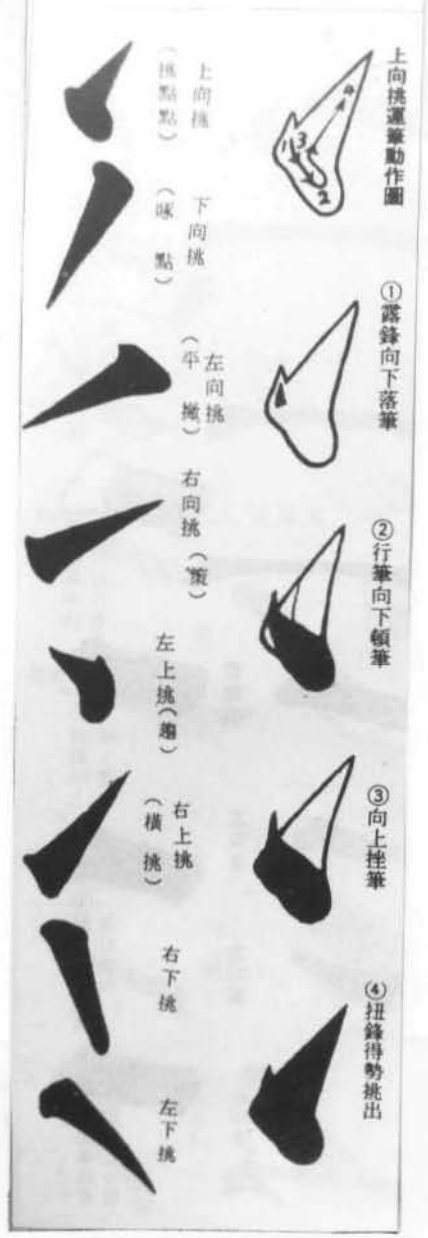 上向挑運筆動作圖
①露鋒向下落筆
②行筆向下頓筆
③向上挫筆
④扭鋒得勢挑出
1
3
2
4
上向挑
(挑點點)
下向挑
(啄點)
左向挑
(平撇)
右向挑(策)
左上挑(趯)
右上挑
(橫挑)
右下挑
左下挑